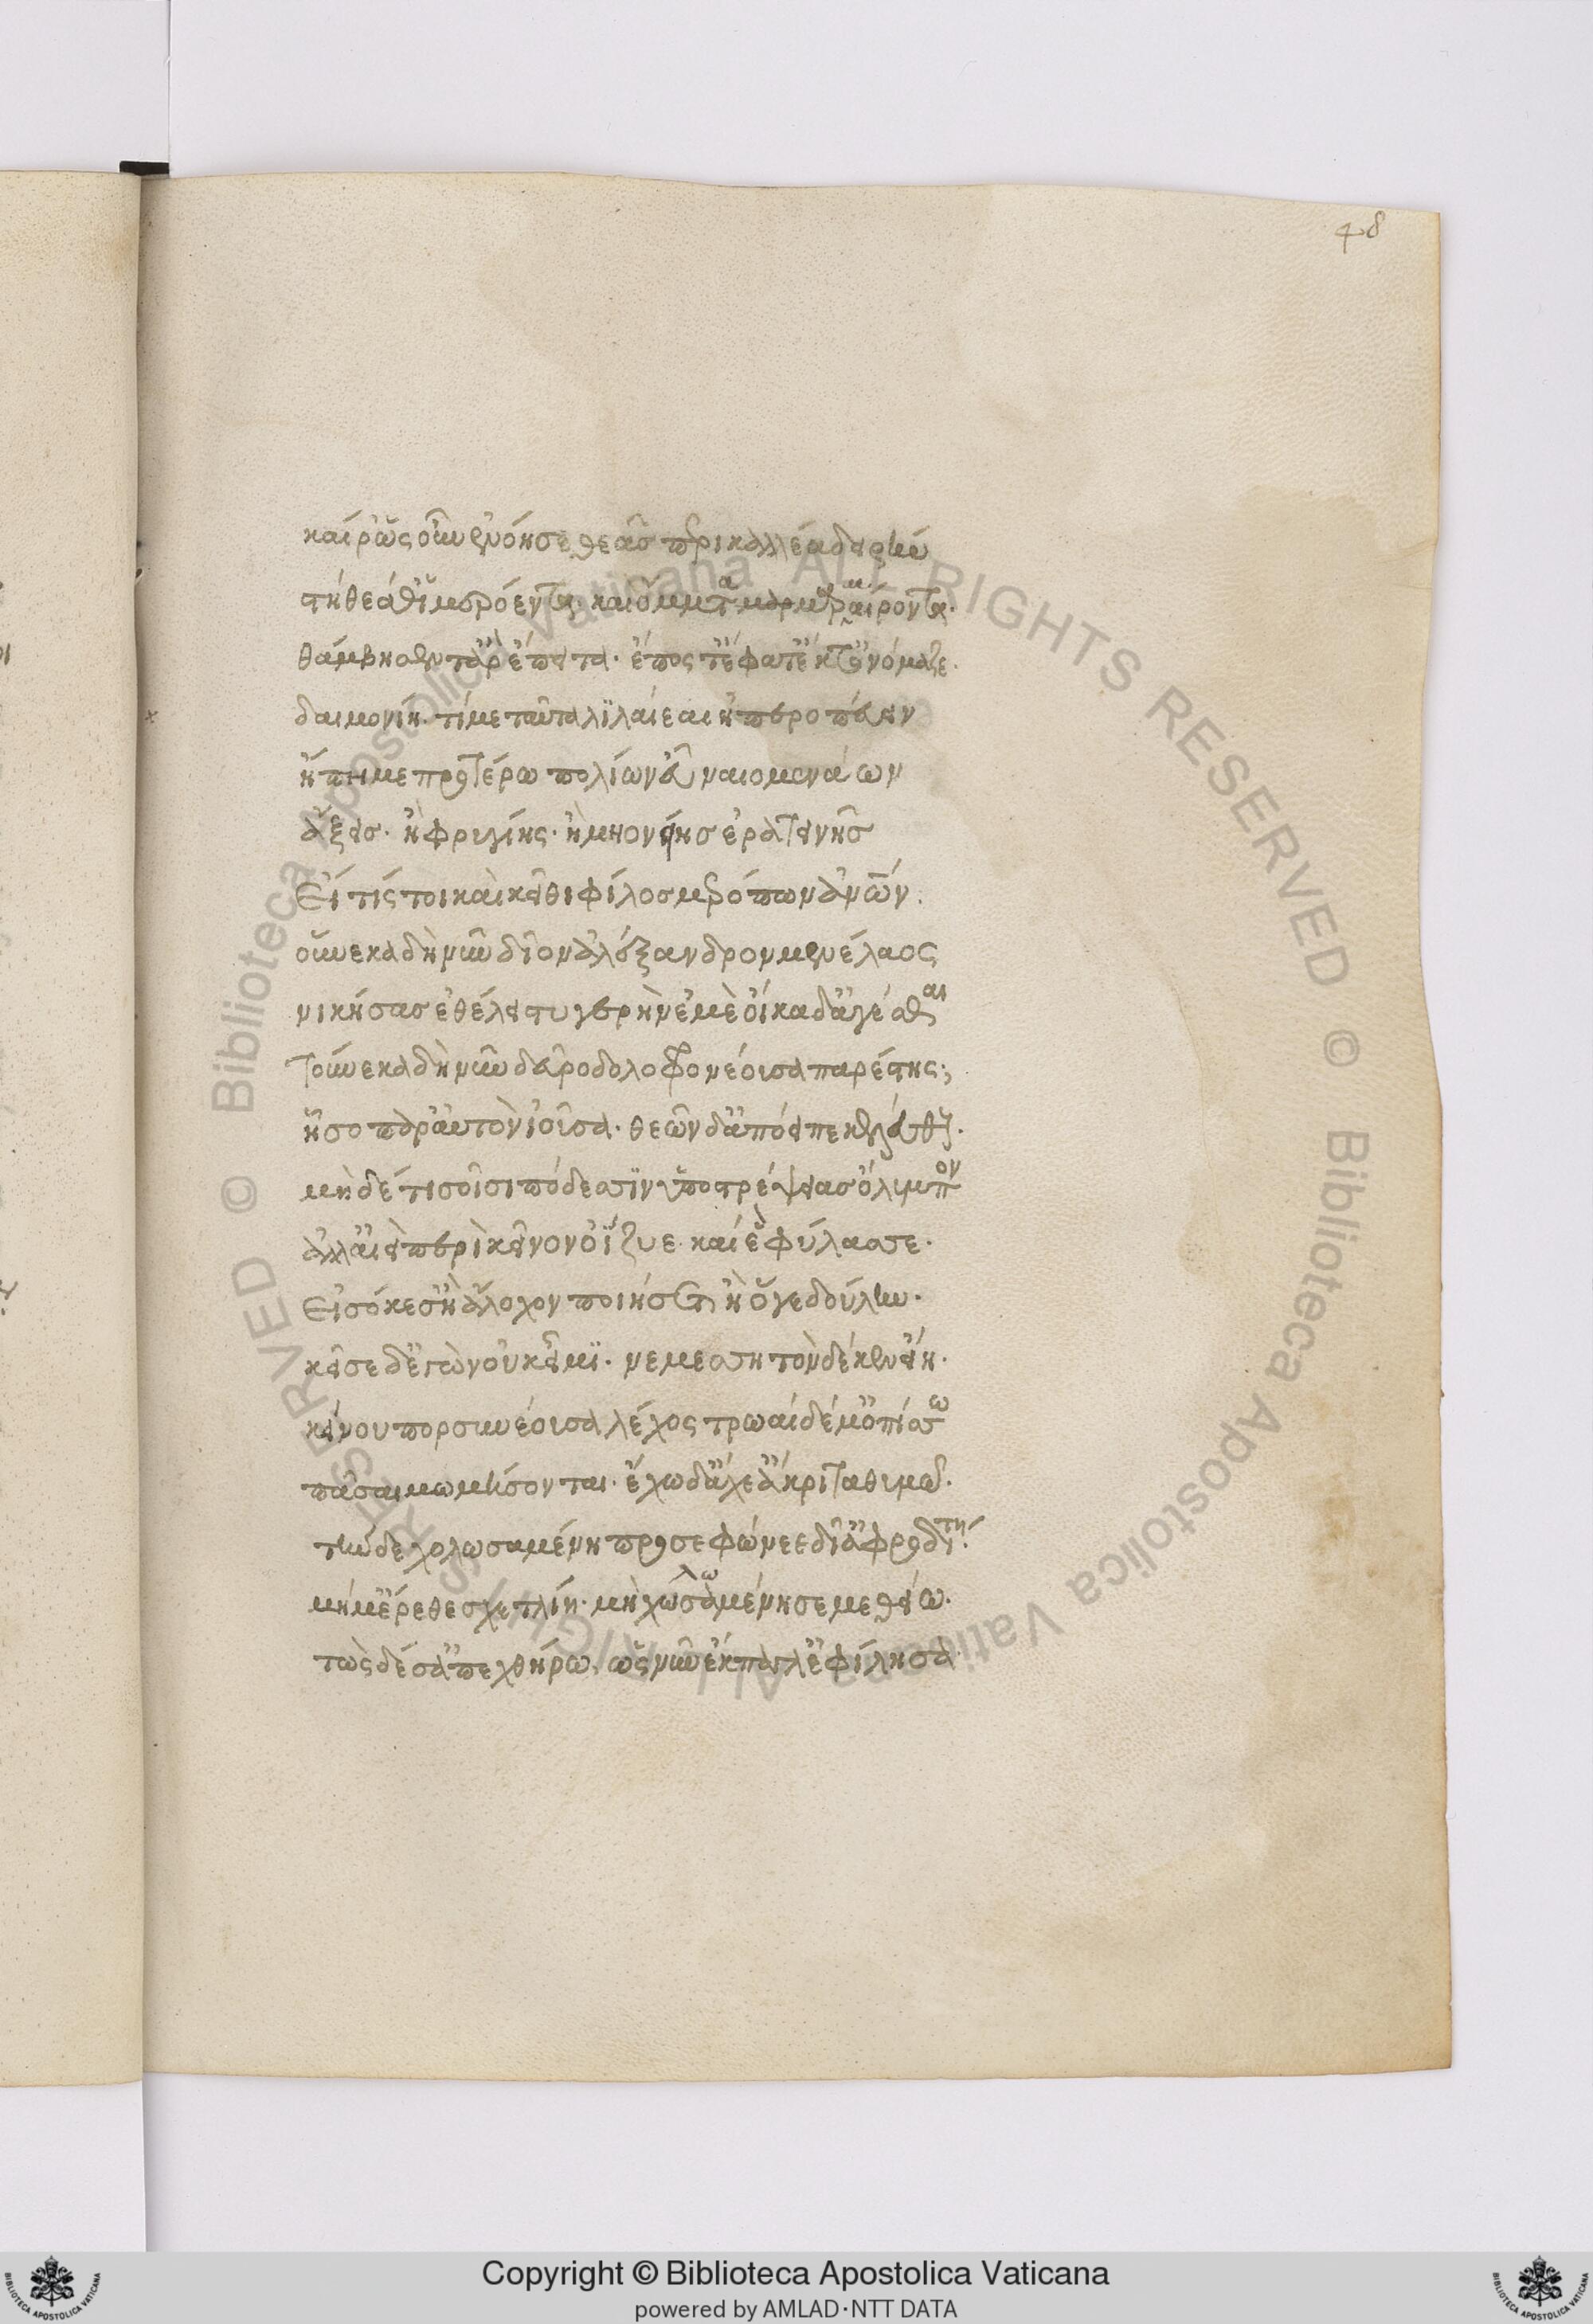 48
καί ῥ' ὡς οὖν ἐνόησε θεᾶς περικαλλέα δειρὴν
στήθεά θ' ἱμερόεντα· καὶ ὄμματα μαρμαίροντα·
θάμβησέν τ' ἂρ ἔπειτα· ἔπος τ' ἔφατ' ἔκ τ' ὀνόμαζε·
δαιμονίη· τί με ταῦτα λιλαίεαι ἠπεροπεύειν
ἤ πῃ με προτέρω πολίων εὖ ναιομενάων
ἄξεις· ἢ φρυγίης· ἢ μῃονίης ἐρατεινῆς
Εἴ τίς τοι καὶ κεῖθι φίλος μερόπων ἀνθρώπων·
οὕνεκα δὴ νῦν δῖον ἀλέξανδρον μενέλαος
νικήσας ἐθέλει στυγερὴν ἐμὲ οἴκαδ' ἄγεσθαι
Τοὔνεκα δὴ νῦν δεῦρο δολοφρονέουσα παρέστης;
ἧσο παρ' αὐτὸν ἰοῦσα· θεῶν δ' ἀπόειπε κελεύθου·
μὴ δέ τι σοῖσι πόδεσσιν ὑποστρέψειας ὄλυμπον
ἀλλ' αἰεὶ περὶ κεῖνον ὀΐζυε· καί ἑ φύλασσε·
Εἰσόκε σ' ἢ ἄλοχον ποιήσεται ἢ ὅγε δούλην·
κεῖσε δ' ἐγὼν οὐκ εἶμι· νεμεσσητὸν δέ κεν εἴη·
κείνου πορσυνέουσα λέχος τρωαὶ δέ μ' ὀπίσσω
πᾶσαι μωμήσονται· ἔχω δ' ἄχε' ἄκριτα θυμῶ·
τὴν δὲ χολωσαμένη προσεφώνεε δῖ' ἀφροδίτη·
μή μ' ἔρεθε σχετλίη· μὴ χωσαμένη σε μεθείω·
τὼς δέ σ' ἀπεχθήρω, ὡς νῦν ἔκπαγλ' ἐφίλησα
Copyright © Biblioteca Apostolica Vaticana
powered by AMLAD·NTT DATA